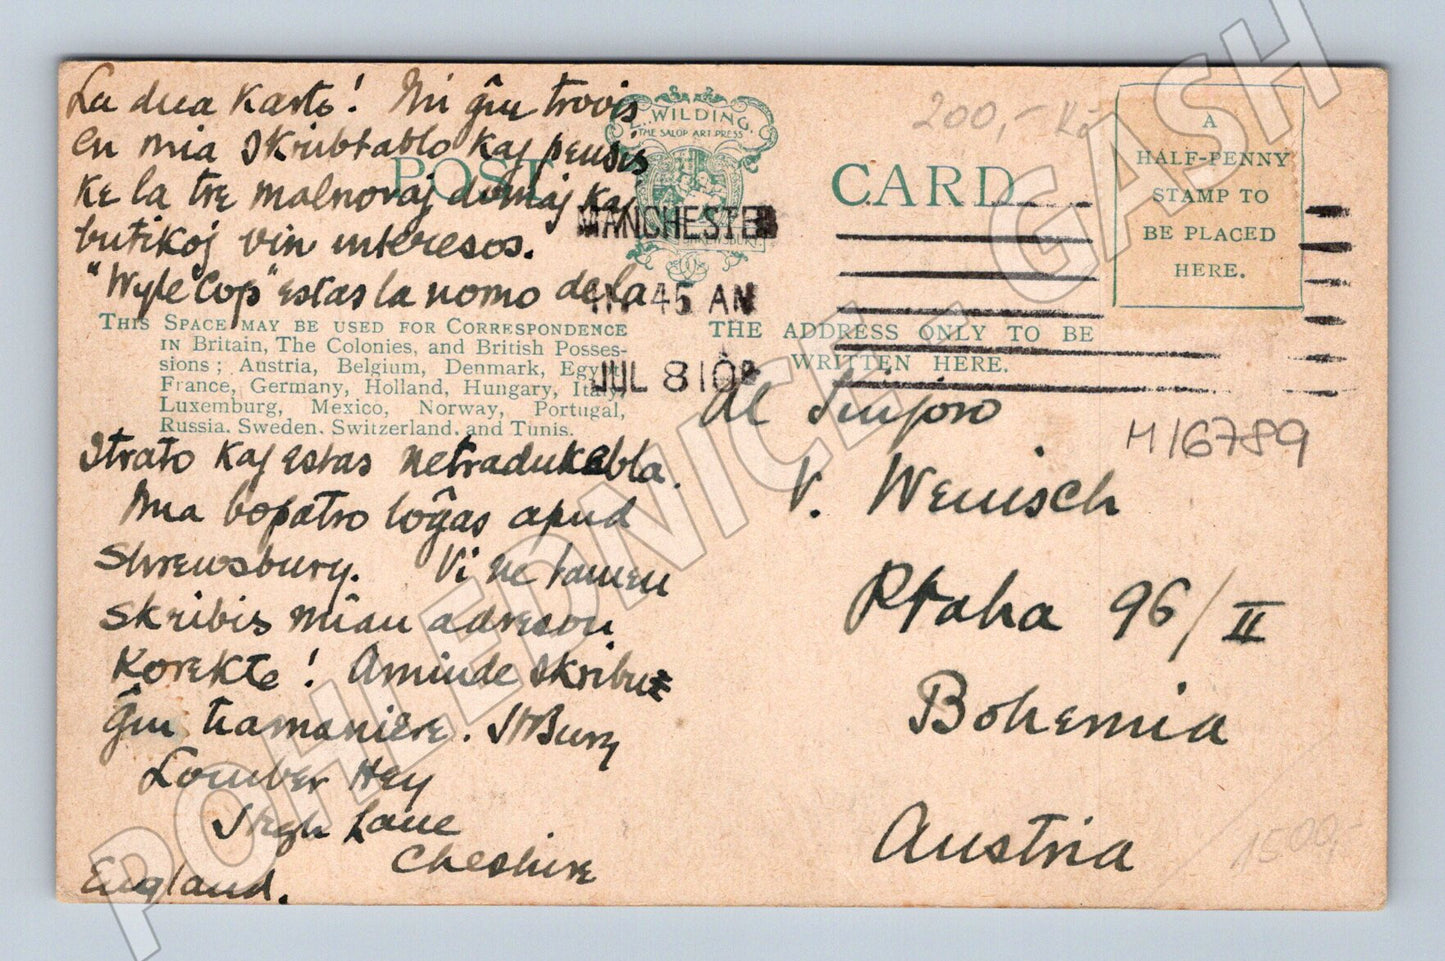 La dua karto! Mi ĝin trovis
en mia skribtablo kaj pensis
ke la tre malnovaj domaj kaj
butikoj vin interesos.
"Wyle Cop" estas la nomo de la
Strato kaj estas netradukebla.
Mia bopatro loĝas apud
Shrewsbury. Vi ne tamen
skribis mian adreson
korekte! Aminde skribu
ĝin tiamaniere. H Bury
High Lane
Cheshire
England.
L. WILDING.
THE SALOP ART PRESS
SHREWSBURY.
POST CARD
THIS SPACE MAY BE USED FOR CORRESPONDENCE
IN Britain, The Colonies, and British Posses-
sions; Austria, Belgium, Denmark, Egypt
France, Germany, Holland, Hungary, Italy,
Luxemburg, Mexico, Norway, Portugal,
Russia. Sweden. Switzerland. and Tunis.
THE ADDRESS ONLY TO BE
WRITTEN HERE.
A
HALF-PENNY
STAMP TO
BE PLACED
HERE.
MANCHESTER
45 AM
JUL 8 10
200,- Kč
Al Sinjoro
V. Wenisch
Praha 96/II
Bohemia
Austria
M16789
1500,-
POHLEDNICE - GASH